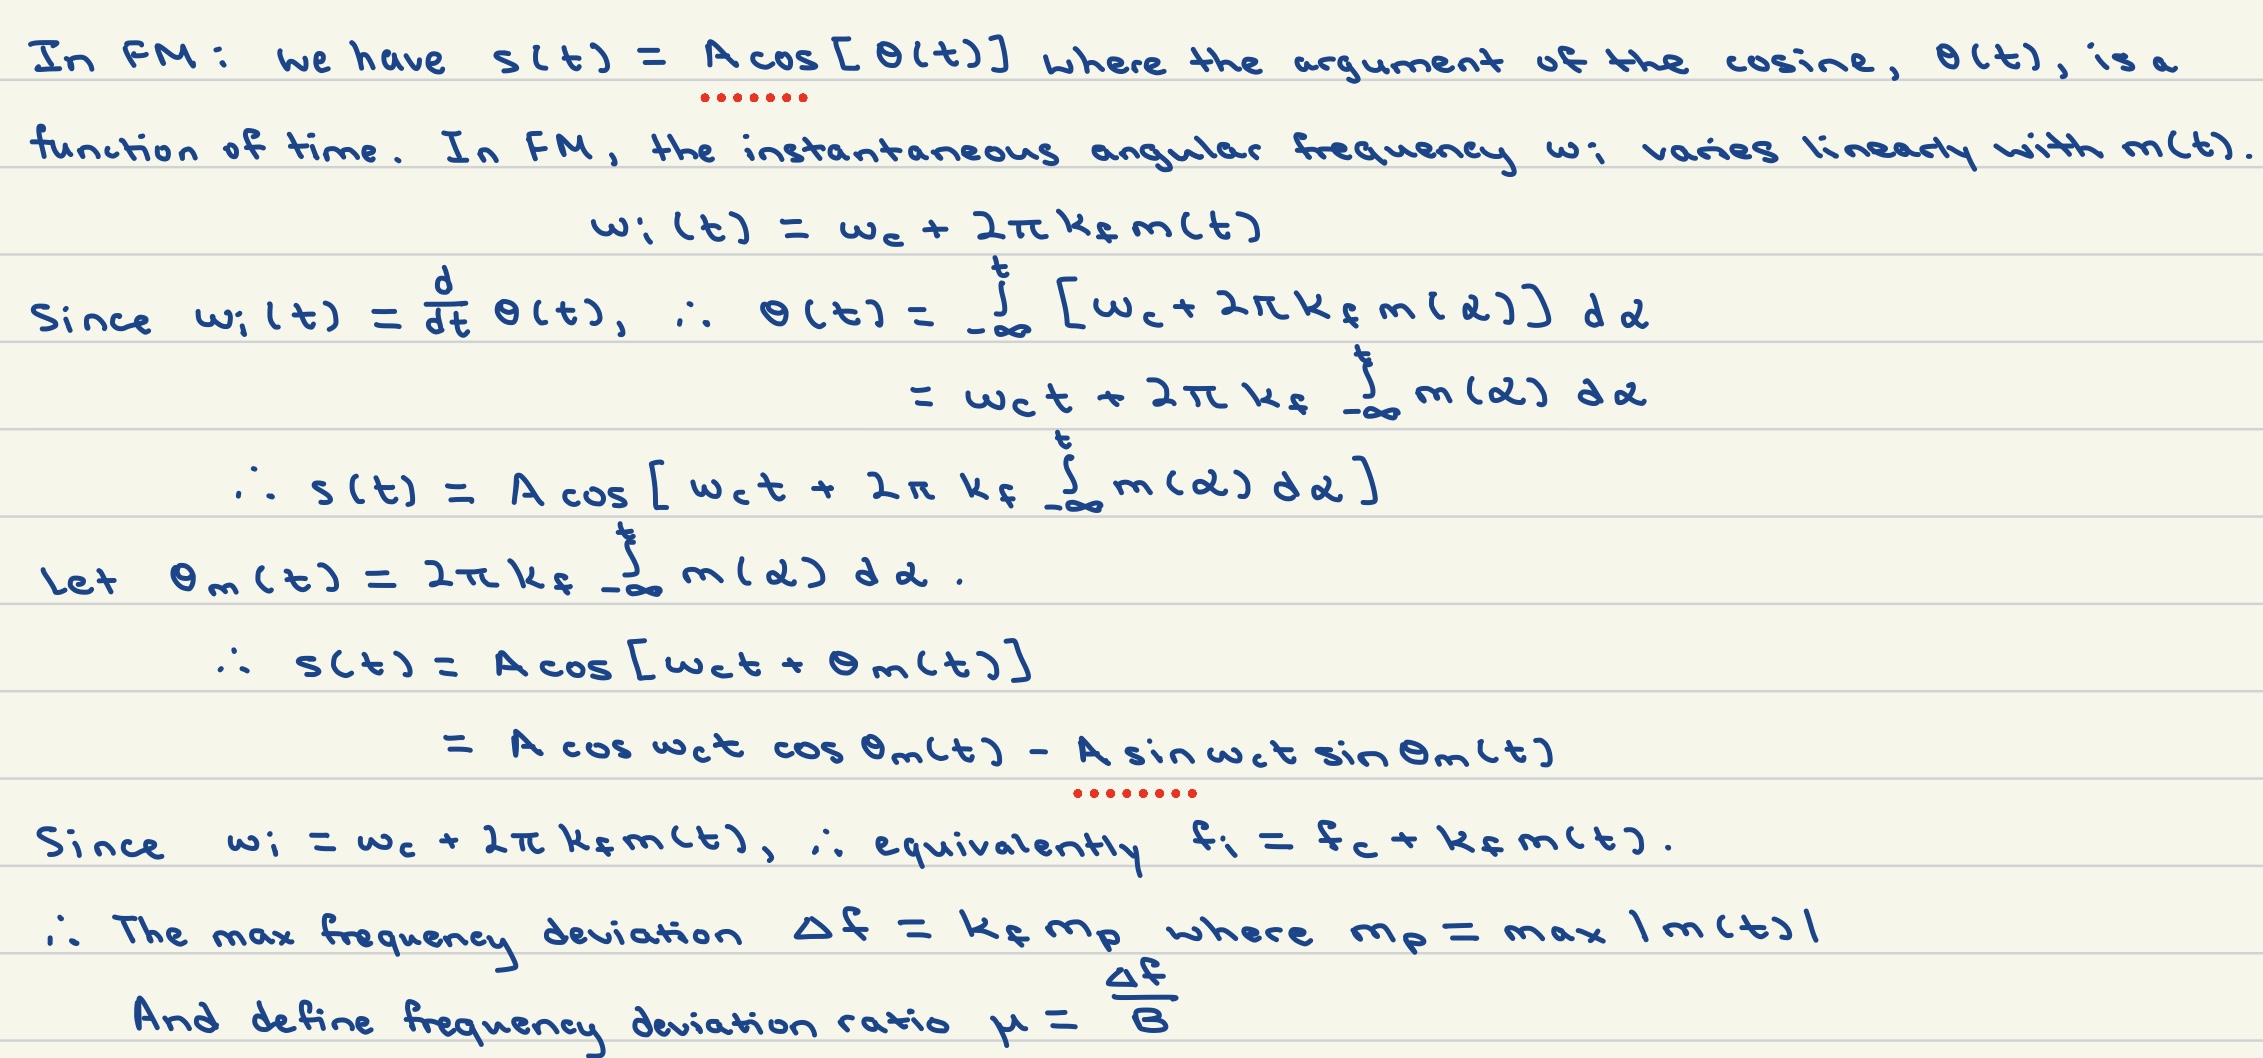 In FM: we have s(t) = A cos[θ(t)] where the argument of the cosine, θ(t), is a
function of time. In FM, the instantaneous angular frequency ωi varies linearly with m(t).
ωi(t) = ωc + 2πkf m(t)
Since ωi(t) = d/dt θ(t), ∴ θ(t) = ∫_{-∞}^{t} [ωc + 2πkf m(α)] dα
= ωct + 2πkf ∫_{-∞}^{t} m(α) dα
∴ s(t) = A cos[ωct + 2π kf ∫_{-∞}^{t} m(α) dα]
Let θm(t) = 2πkf ∫_{-∞}^{t} m(α) dα.
∴ s(t) = A cos[ωct + θm(t)]
= A cos ωct cos θm(t) - A sin ωct sin θm(t)
Since ωi = ωc + 2πkf m(t), ∴ equivalently fi = fc + kf m(t).
∴ The max frequency deviation Δf = kf mp where mp = max |m(t)|
And define frequency deviation ratio μ = Δf/B